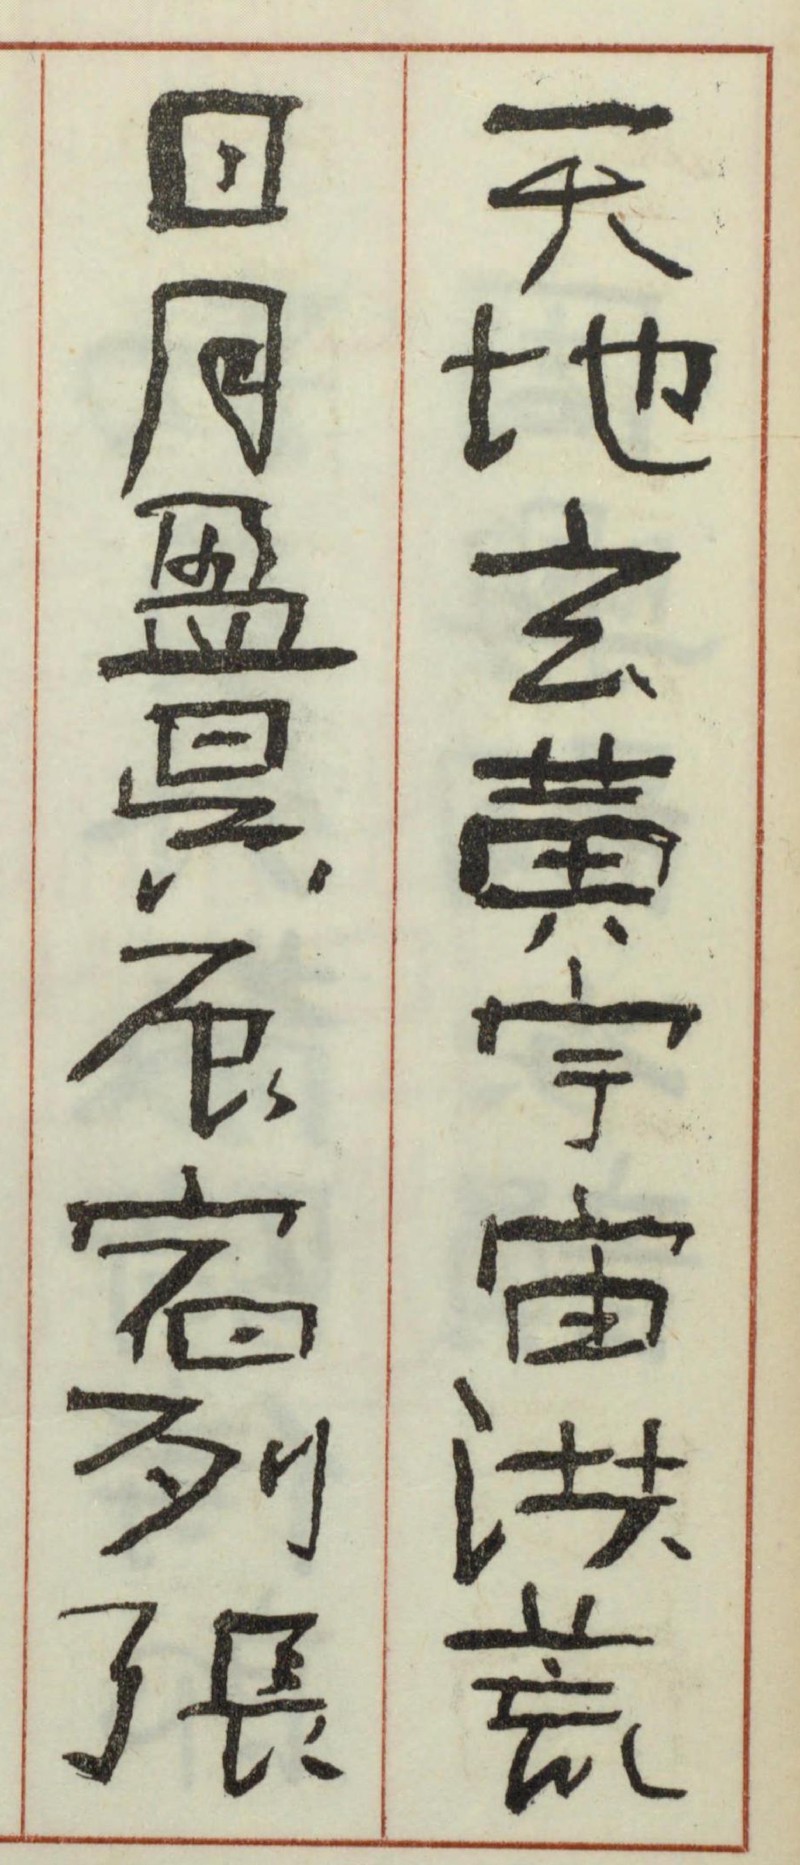 天地玄黃宇宙洪荒
日月盈昃辰宿列張